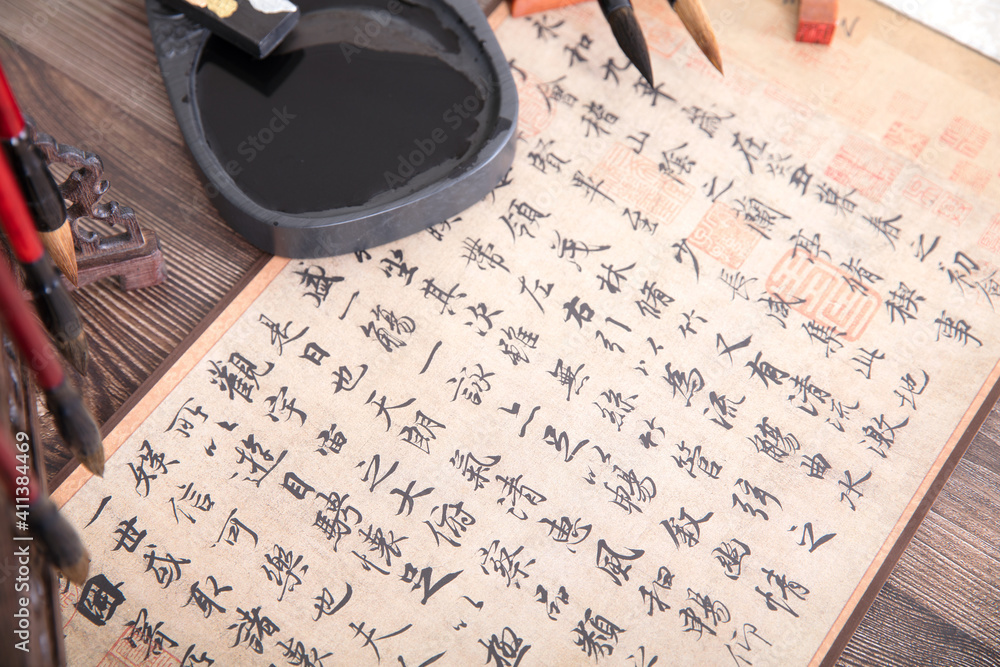 永和九年歲在癸丑暮春之初會
會稽山陰之蘭亭脩稧事
賢畢至少長咸集此地
領茂林脩竹又有清流激
帶左右引以為流觴曲水
坐其次雖無絲竹管弦之
盛一觴一詠亦足以暢敘幽情
是日也天朗氣清惠風和暢仰
觀宇宙之大俯察品類
所以遊目騁懷足以極
娛信可樂也夫
一世或取諸懷
因寄所
Adobe Stock | #411384469